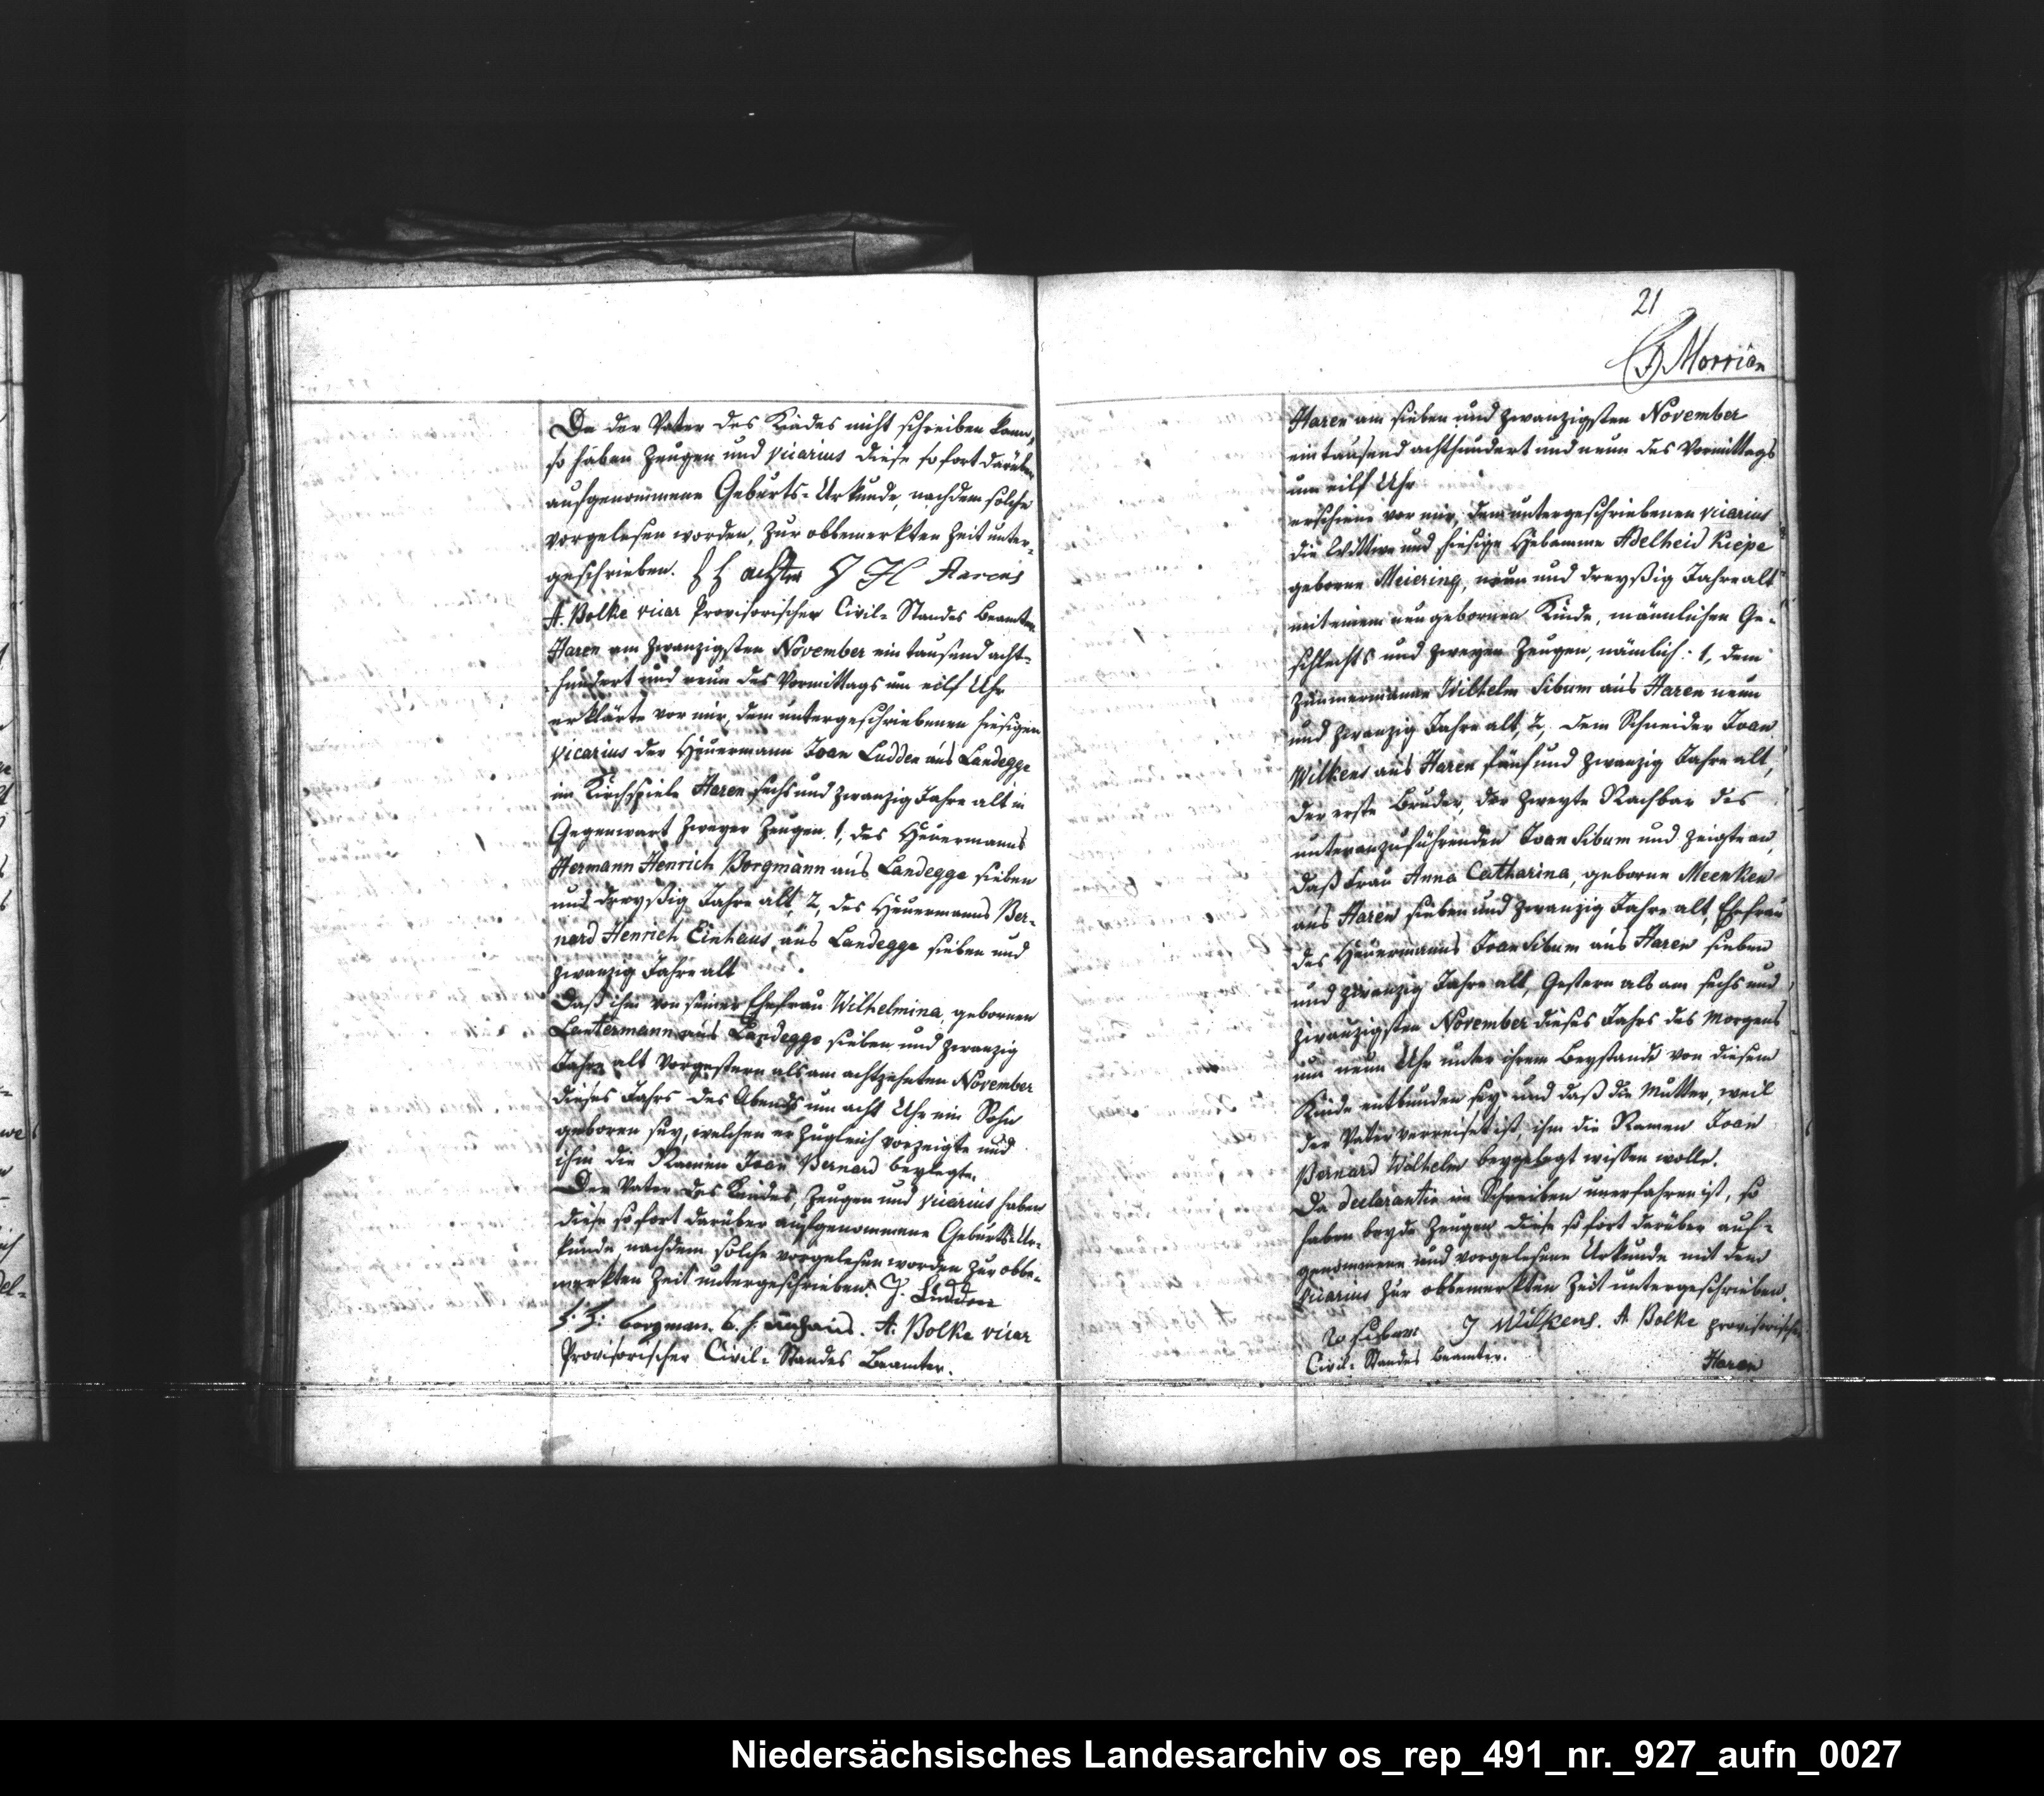 Da der Vater des Kindes nicht schreiben kann,
so haben Zeugen und vicarius diese sofort darüber
aufgenommene Geburts-Urkunde, nachdem solche
vorgelesen worden, zur obbemerkten Zeit unter-
geschrieben. J H Aarens
A. Bolke vicar Provisorischer Civil-Standes Beamter
Haren am zwanzigsten November ein tausend acht-
hundert und neun des Vormittags um eilf Uhr
erklärte vor mir, dem untergeschriebenen hiesigen
vicarius der Heuermann Joan Ludden aus Landegge
im Kirchspiele Haren sechs und zwanzig Jahre alt in
Gegenwart zweyer Zeugen 1, des Heuermanns
Hermann Henrich Borgmann aus Landegge sieben
und dreyßig Jahre alt, 2, des Heuermanns Ber-
nard Henrich Einhaus aus Landegge sieben und
zwanzig Jahre alt
Daß ihm von seiner Ehefrau Wilhelmina, gebornen
Lantermann aus Landegge sieben und zwanzig
Jahre alt vorgestern als am achtzehnten November
dieses Jahrs des Abends um acht Uhr ein Sohn
geboren sey, welchen er zugleich vorzeigte und
ihm die Namen Joan Bernard beylegte.
Der Vater des Kindes, Zeugen und vicarius haben
diese sofort darüber aufgenommene Geburts-Ur-
kunde, nachdem solche vorgelesen worden zur obbe-
merkten Zeit untergeschrieben. J. Ludden
H. H. borgman. b. h. einhaus. A. Bolke vicar
Provisorischer Civil-Standes Beamter.
21
Morrien
Haren am sieben und zwanzigsten November
ein tausend achthundert und neun des Vormittags
um eilf Uhr
erschiene vor mir, dem untergeschriebenen vicarius
die Wittwe und hiesige Hebamme Adelheid Kiepe
geborne Meiering, neun und dreyßig Jahre alt
mit einem neugebornen Kinde, männlichen Ge-
schlechts und zweyen Zeugen, nämlich: 1, dem
Zimmermanne Wilhelm Sibum aus Haren neun
und zwanzig Jahre alt, 2, dem Schneider Joan
Wilkens aus Haren fünf und zwanzig Jahre alt,
der erste Bruder, der zweyte Nachbar des
unteranzuführenden Joan Sibum und zeigte an,
daß Frau Anna Catharina, geborne Meenken
aus Haren sieben und zwanzig Jahre alt, Ehefrau
des Heuermanns Joan Sibum aus Haren sieben
und zwanzig Jahre alt, Gestern als am sechs und
zwanzigsten November dieses Jahrs des Morgens
um neun Uhr unter ihrem Beystande von diesem
Kinde entbunden sey und daß die Mutter, weil
der Vater verreiset ist, ihm die Namen Joan
Bernard Wilhelm beygelegt wissen wolle.
Da declarantin im Schreiben unerfahren ist, so
haben beyde Zeugen diese sofort darüber auf-
genommene und vorgelesene Urkunde mit dem
vicarius zur obbemerkten Zeit untergeschrieben.
W Sibum J Wilkens. A Bolke provisorischer
Civil-Standes Beamter.
Haren
Niedersächsisches Landesarchiv os_rep_491_nr._927_aufn_0027